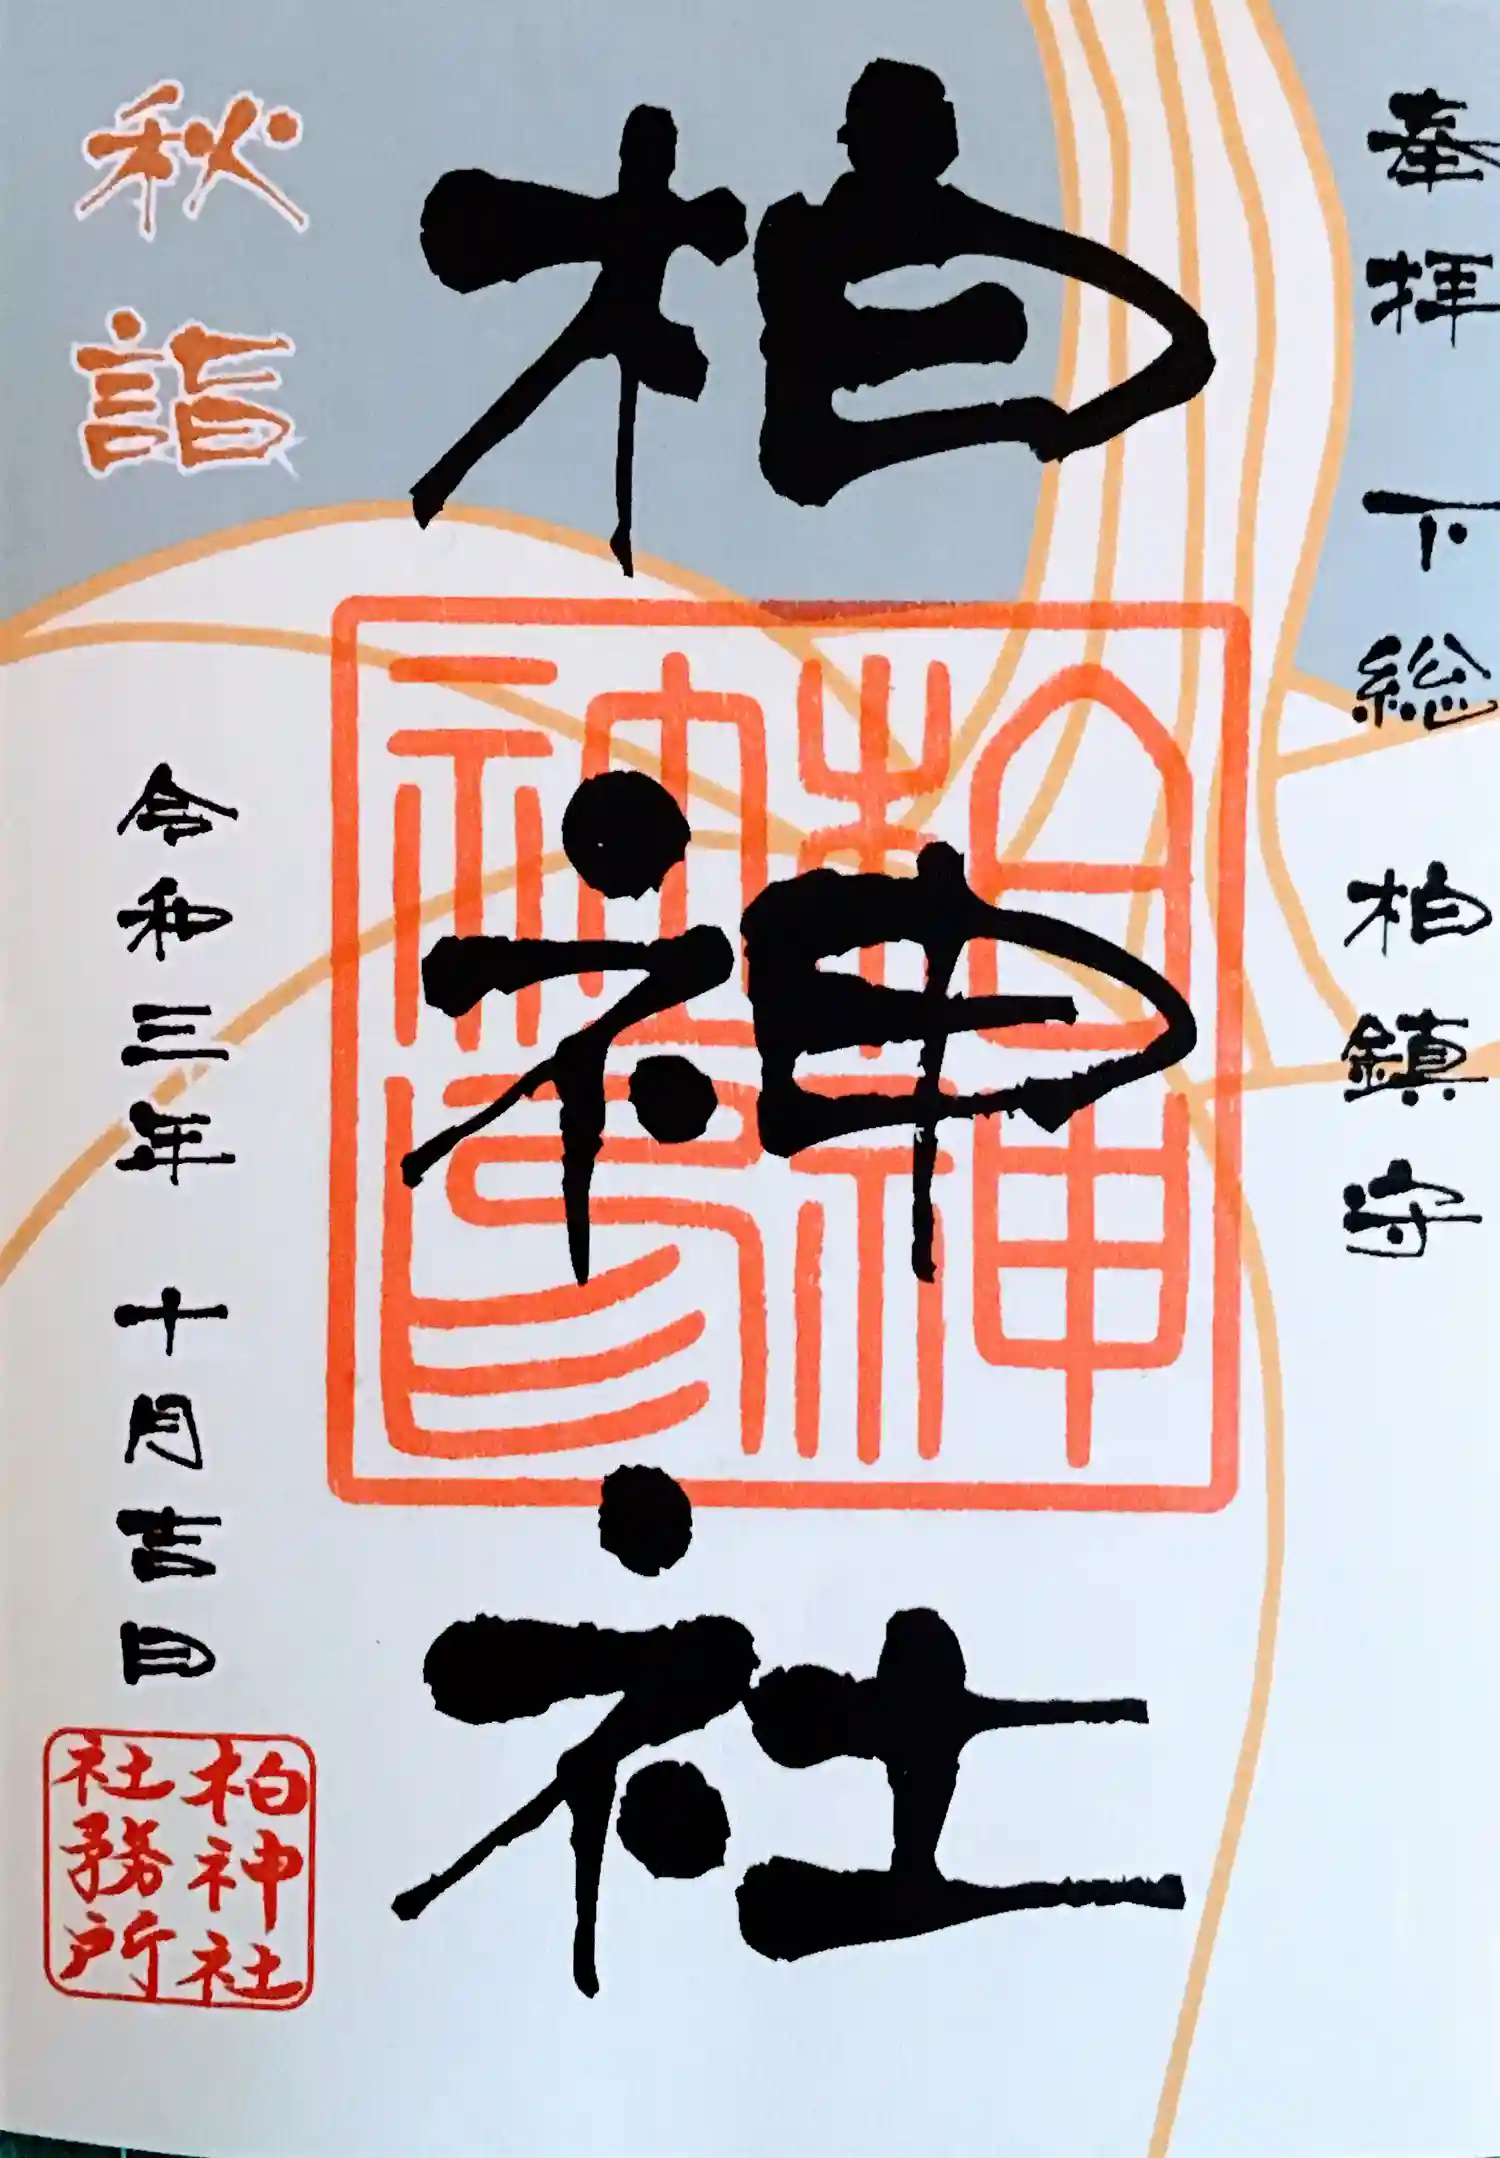 奉拝 下総 柏鎮守
柏神社
柏神社
神印
秋詣
令和三年 十月吉日
柏神社
社務所